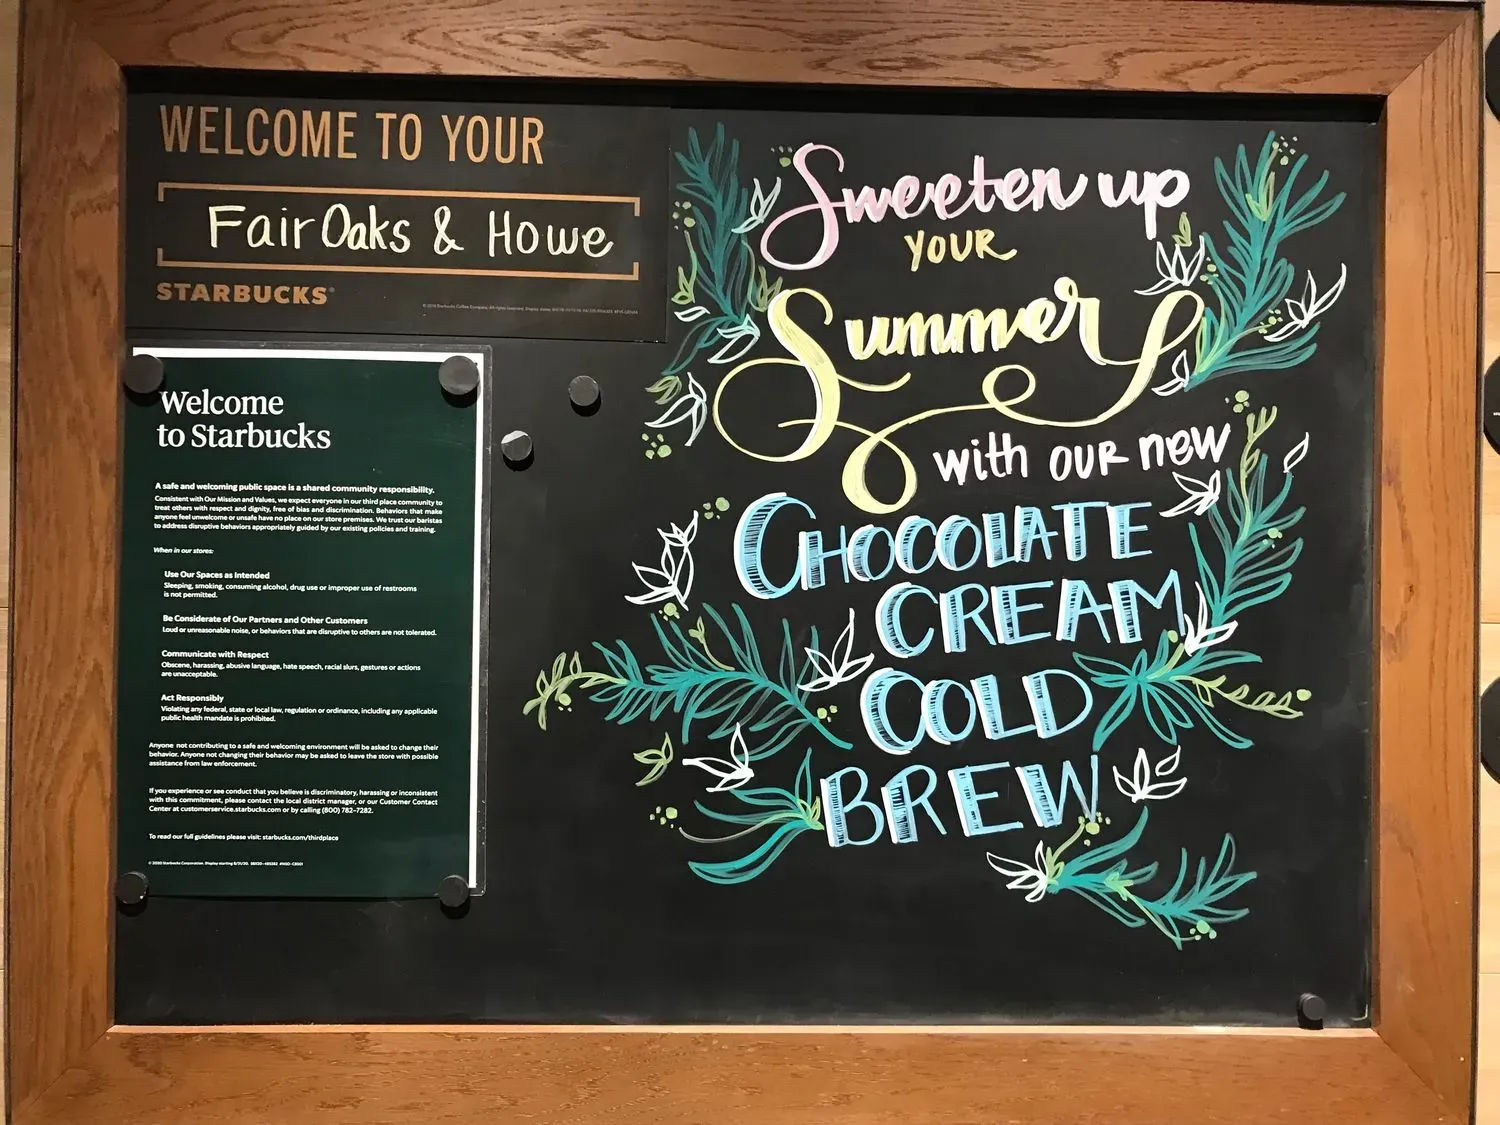 WELCOME TO YOUR
Fair Oaks & Howe
STARBUCKS®
Welcome
to Starbucks
A safe and welcoming public space is a shared community responsibility.
Consistent with Our Mission and Values, we expect everyone in our third place community to
treat others with respect and dignity, free of bias and discrimination. Behaviors that make
anyone feel unwelcome or unsafe have no place on our store premises. We trust our baristas
to address disruptive behaviors appropriately guided by our existing policies and training.
When in our stores:
Use Our Spaces as Intended
Sleeping, smoking, consuming alcohol, drug use or improper use of restrooms
is not permitted.
Be Considerate of Our Partners and Other Customers
Loud or unreasonable noise, or behaviors that are disruptive to others are not tolerated.
Communicate with Respect
Obscene, harassing, abusive language, hate speech, racial slurs, gestures or actions
are unacceptable.
Act Responsibly
Violating any federal, state or local law, regulation or ordinance, including any applicable
public health mandate is prohibited.
Anyone not contributing to a safe and welcoming environment will be asked to change their
behavior. Anyone not changing their behavior may be asked to leave the store with possible
assistance from law enforcement.
If you experience or see conduct that you believe is discriminatory, harassing or inconsistent
with this commitment, please contact the local district manager, or our Customer Contact
Center at customerservice.starbucks.com or by calling (800) 782-7282.
To read our full guidelines please visit: starbucks.com/thirdplace
© 2020 Starbucks Corporation. Display starting 8/31/20.
Sweeten up
YOUR
Summer
with our new
CHOCOLATE
CREAM
COLD
BREW